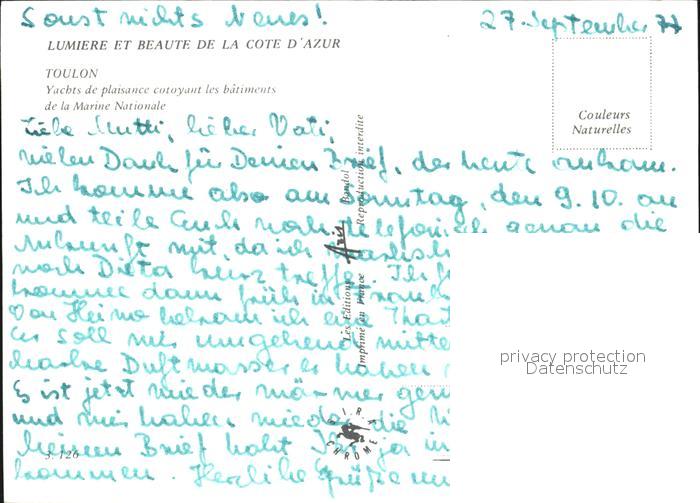 Sonst nichts Neues!
27. September 77
LUMIERE ET BEAUTE DE LA COTE D'AZUR
TOULON
Yachts de plaisance cotoyant les bâtiments
de la Marine Nationale
Couleurs
Naturelles
Liebe Mutti, lieber Vati,
vielen Dank für Deinen Brief, der heute ankam.
Ich komme also am Sonntag, den 9.10. an
und teile Euch noch telefonisch genau die
Ankunft mit, da ich
noch Dieta kurz treffe. Ich
komme dann früh in
Von Heino bekam ich eine
Er soll mir umgehend
Duftwasser er haben
Es ist jetzt wieder wärmer
und wir haben wieder die
Meinen Brief habt Ihr ja
bekommen. Herzliche Grüße
Les Editions Aris Bandol
Imprimé en France Reproduction interdite
S. 126
MIRA CHROME
privacy protection
Datenschutz